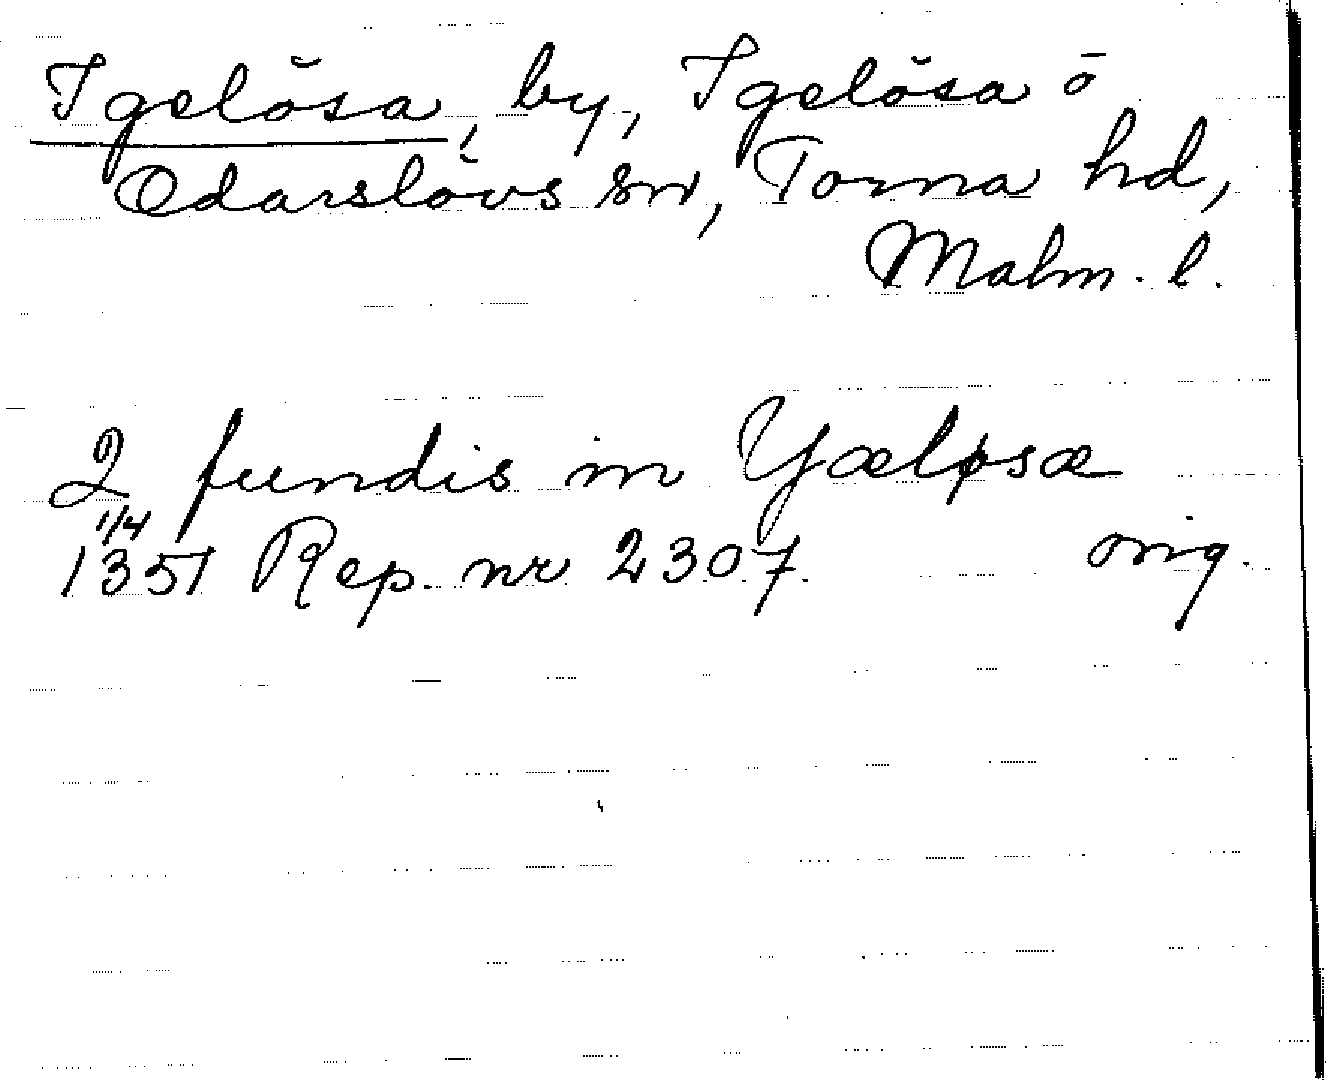 Igelösa, by, Igelösa o
Odarslövs sn, Torna hd,
Malm. l.
2 fundis in Yæløsæ
1/4
1351 Rep. nr 2307. orig.